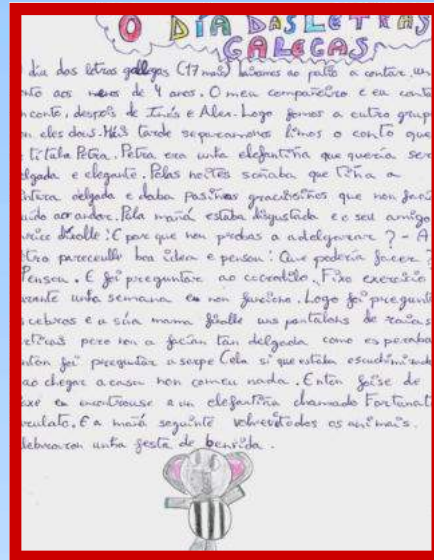 O DÍA DAS LETRAS
GALEGAS
dia das letras gallegas (17 maio) baixamos ao patio a contar, un
nto aos nenos de 4 anos. O meu compañeiro e eu conta
conto, despois de Inés e Alex. Logo fomos a outro grup
n eles dous. Máis tarde separamonos limos o conto que
titula Petra. Petra era unha elefantiña que quería ser
lgada e elegante. Polas noites soñaba que tiña a
ntura delgada e daba pasiños graciosiños que non facía
uido ao andar. Pola mañá estaba disgustada e o seu amigo
díxolle: E por que non probas a adelgazar? - A
tra pareceulle boa idea e pensou: Que podería facer?
Pensou. E foi preguntar ao cocodrilo. Fixo exercicio
rante unha semana e non funciono. Logo foi pregunt
cebras e a súa mama fixolle uns pantalóns de raias
verticais pero non a facían tan delgada como esperaba
ntón foi preguntar a serpe Cela si que estaba
ao chegar a casa non comeu nada. Entón foise de
e encontrouse a un elefantiña chamado Fortunat
. E a mañá seguinte todos os animais.
lebraron unha festa de benvida.